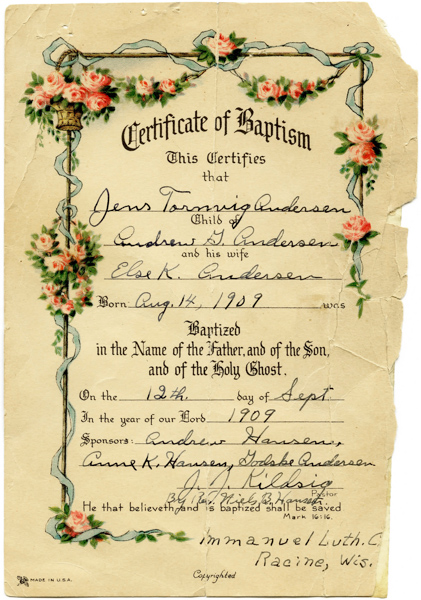 Certificate of Baptism
This Certifies
that
Jens Tormvig Andersen
Child of
Andrew G. Andersen
and his wife
Else K. Andersen
Born Aug. 14, 1909 was
Baptized
in the Name of the Father, and of the Son,
and of the Holy Ghost.
On the 12th. day of Sept.
In the year of our Lord 1909
Sponsors: Andrew Hansen,
Anne K. Hansen, Godske Andersen
J. J. Kildsig
Pastor
By Rev. Niels B. Hansen
He that believeth and is baptized shall be saved
Mark 16:16.
Immanuel Luth. C.
Racine, Wis.
MADE IN U.S.A.
Copyrighted